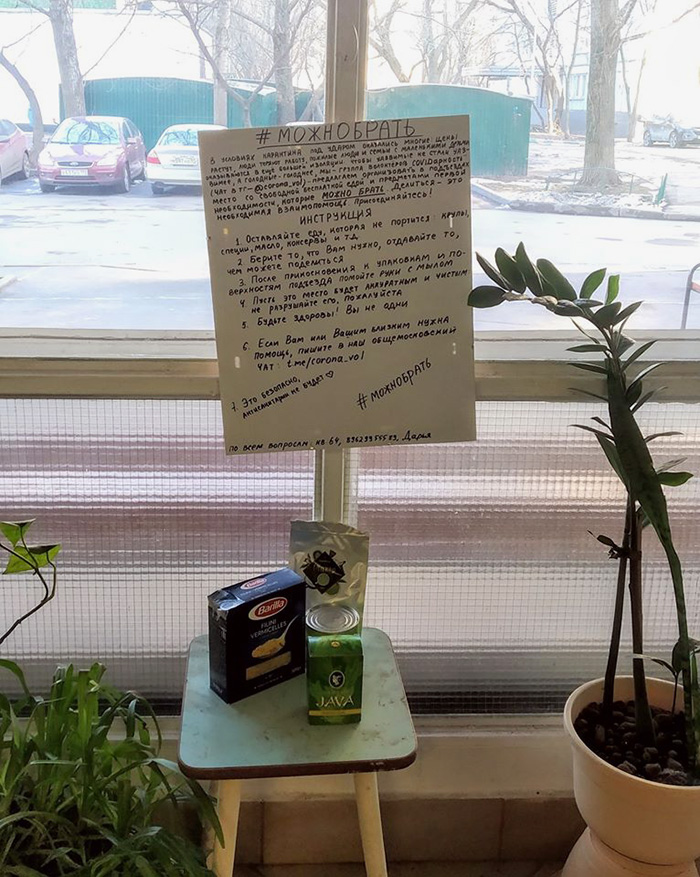 #МОЖНОБРАТЬ
В УСЛОВИЯХ КАРАНТИНА ПОД УДАРОМ ОКАЗАЛИСЬ МНОГИЕ: ЦЕНЫ
РАСТУТ, ЛЮДИ ТЕРЯЮТ РАБОТУ, ПОЖИЛЫЕ ЛЮДИ И СЕМЬИ С МАЛЕНЬКИМИ ДЕТЬМИ
ОКАЗЫВАЮТСЯ В ЕЩЕ БОЛЬШЕЙ ИЗОЛЯЦИИ. ЧТОБЫ УЯЗВИМЫЕ НЕ СТАЛИ УЯЗ-
ВИМЕЕ, А ГОЛОДНЫЕ ГОЛОДНЕЕ, МЫ - ГРУППА ВОЛОНТЕРОВ COVIDАРНОСТЬ
(ЧАТ В ТГ - @corona_vol) - ПРЕДЛАГАЕМ ОРГАНИЗОВАТЬ В ПОДЪЕЗДАХ
МЕСТО СО СВОБОДНОЙ БЕСПЛАТНОЙ ЕДОЙ И ПРЕДМЕТАМИ ПЕРВОЙ
НЕОБХОДИМОСТИ, КОТОРЫЕ МОЖНО БРАТЬ. ДЕЛИТЬСЯ - ЭТО
НЕОБХОДИМАЯ ВЗАИМОПОМОЩЬ. ПРИСОЕДИНЯЙТЕСЬ!
ИНСТРУКЦИЯ
1. ОСТАВЛЯЙТЕ ЕДУ, КОТОРАЯ НЕ ПОРТИТСЯ: КРУПЫ,
СПЕЦИИ, МАСЛО, КОНСЕРВЫ И Т.Д.
2. БЕРИТЕ ТО, ЧТО ВАМ НУЖНО, ОТДАВАЙТЕ ТО,
ЧЕМ МОЖЕТЕ ПОДЕЛИТЬСЯ
3. ПОСЛЕ ПРИКОСНОВЕНИЯ К УПАКОВКАМ И ПО-
ВЕРХНОСТЯМ ПОДЪЕЗДА ПОМОЙТЕ РУКИ С МЫЛОМ
4. ПУСТЬ ЭТО МЕСТО БУДЕТ АККУРАТНЫМ И ЧИСТЫМ
НЕ РАЗРУШАЙТЕ ЕГО, ПОЖАЛУЙСТА
5. БУДЬТЕ ЗДОРОВЫ! ВЫ НЕ ОДНИ
6. ЕСЛИ ВАМ ИЛИ ВАШИМ БЛИЗКИМ НУЖНА
ПОМОЩЬ, ПИШИТЕ В НАШ ОБЩЕМОСКОВСКИЙ
ЧАТ: t.me/corona_vol
7. ЭТО БЕЗОПАСНО,
АНТИСАНИТАРИИ НЕ БУДЕТ ♡
#МОЖНОБРАТЬ
ПО ВСЕМ ВОПРОСАМ КВ 64, ДАРЬЯ
Barilla
FILINI
VERMICELLES
JAVA